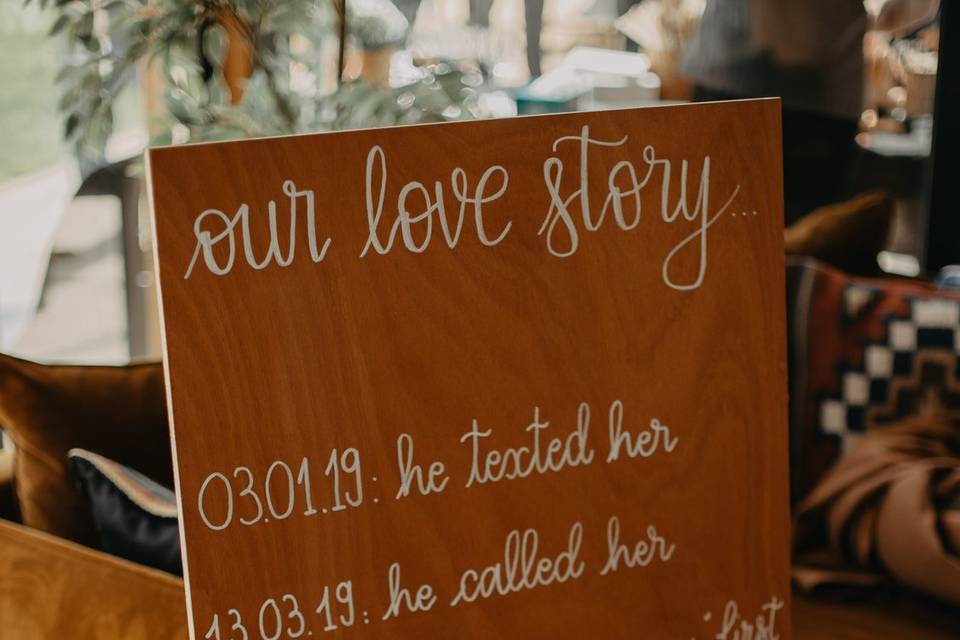 our love story...
03.01.19: he texted her
13.03.19: he called her
first